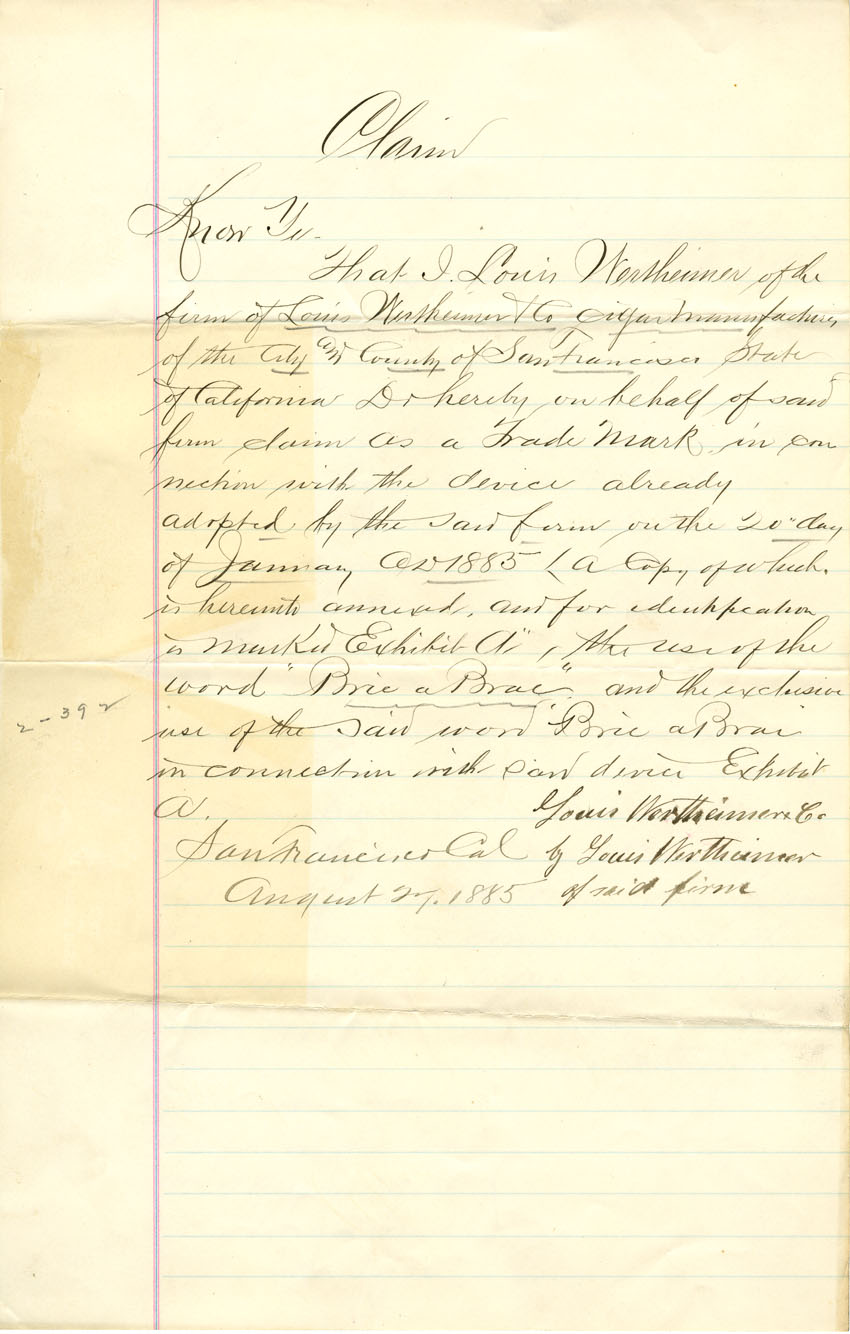 Claim
Know Ye.
That I. Louis Wertheimer of the
firm of Louis Wertheimer & Co cigar manufacturers
of the City and County of San Francisco State
of California Do hereby on behalf of said
firm claim as a Trade Mark in con
nection with the device already
adopted by the said firm on the 20" day
of January AD 1885 ( a Copy of which
is hereunto annexed, and for identification
is marked Exhibit A" , the use of the
word "Bric a Brac". and the exclusive
2-392
use of the said word Bric a Brac
in connection with said device Exhibit
A.
Louis Wertheimer & Co
San Francisco Cal by Louis Wertheimer
August 27. 1885 of said firm